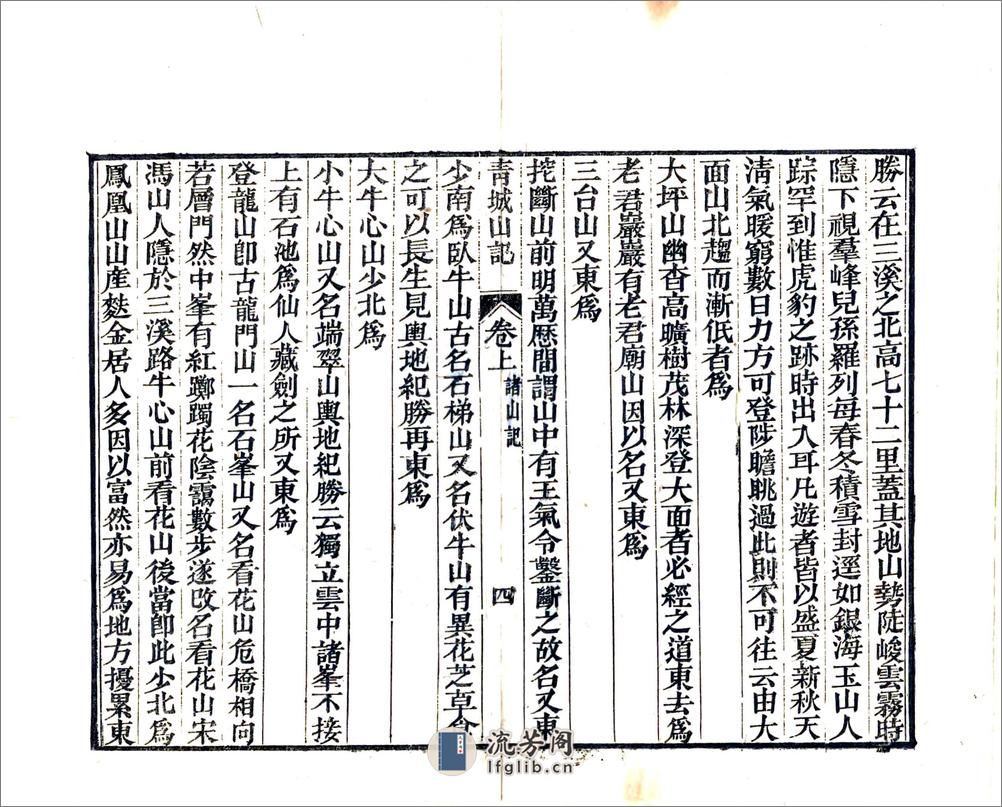 勝云在三溪之北高七十二里蓋其地山勢陡峻雲霧時
隱下視羣峰兒孫羅列每春冬積雪封逕如銀海玉山人
踪罕到惟虎豹之跡時出入耳凡遊者皆以盛夏新秋天
淸氣暖窮數日力方可登陟瞻眺過此則不可往云由大
面山北趨而漸低者爲
大坪山幽杳高曠樹茂林深登大面者必經之道東去爲
老君巖巖有老君廟山因以名又東爲
三台山又東爲
挖斷山前明萬歷間謂山中有王氣令鑿斷之故名又東
靑城山記 卷上 諸山記 四
少南爲臥牛山古名石梯山又名伏牛山有異花芝草食
之可以長生見輿地紀勝再東爲
大牛心山少北爲
小牛心山又名端翠山輿地紀勝云獨立雲中諸峯不接
上有石池爲仙人藏劍之所又東爲
登龍山卽古龍門山一名石峯山又名看花山危橋相向
若層門然中峯有紅躑躅花陰靄數步遂改名看花山宋
馮山人隱於三溪路牛心山前看花山後當卽此少北爲
鳳凰山山産麩金居人多因以富然亦易爲地方擾累東
流芳阁
lfglib.cn